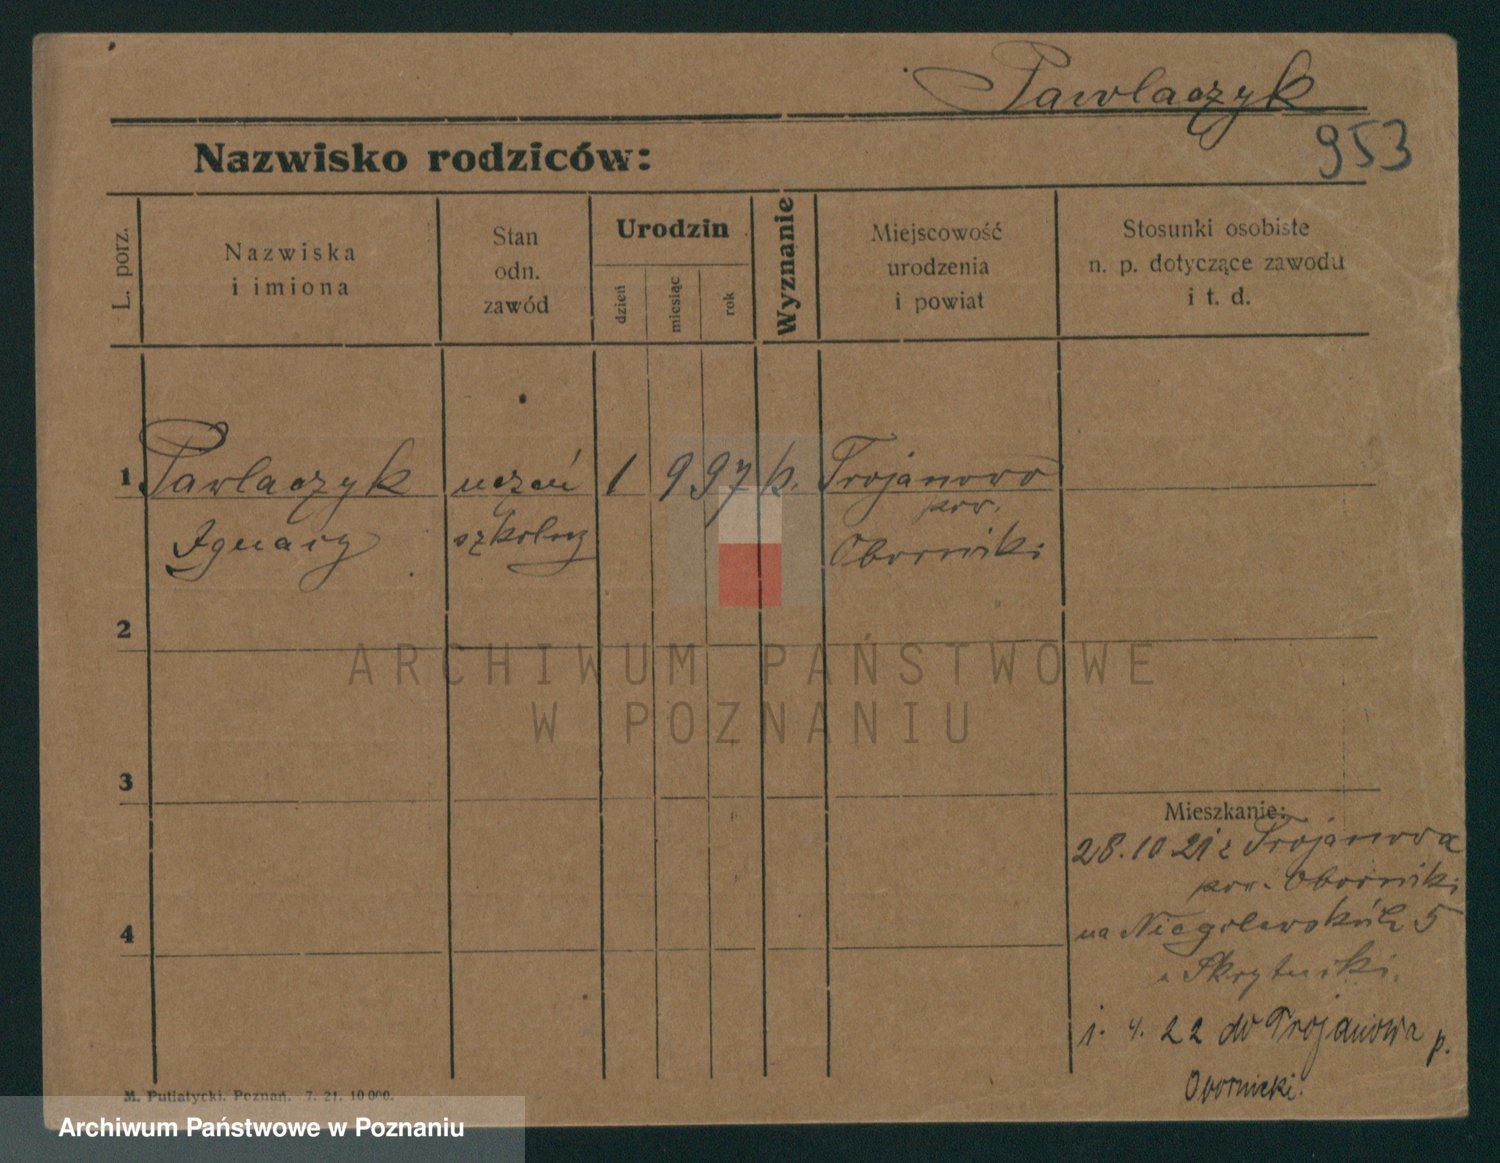 Pawlaczyk
953
Nazwisko rodziców:
L. porz.
Nazwiska
i imiona
Stan
odn.
zawód
Urodzin
dzień
miesiąc
rok
Wyznanie
Miejscowość
urodzenia
i powiat
Stosunki osobiste
n. p. dotyczące zawodu
i t. d.
1 Pawlaczyk uczeń 1 9 97 k. Trojanowo
pow.
Ignacy szkolny Oborniki
2
ARCHIWUM PAŃSTWOWE
W POZNANIU
3
Mieszkanie:
28.10 21 z Trojanowa
pow. Oborniki
4
na Niegolewskich 5
Skrytucki.
1. 4. 22 do Trojanowa p.
Obornicki.
M. Putiatycki, Poznań. 7. 21. 10 000.
Archiwum Państwowe w Poznaniu